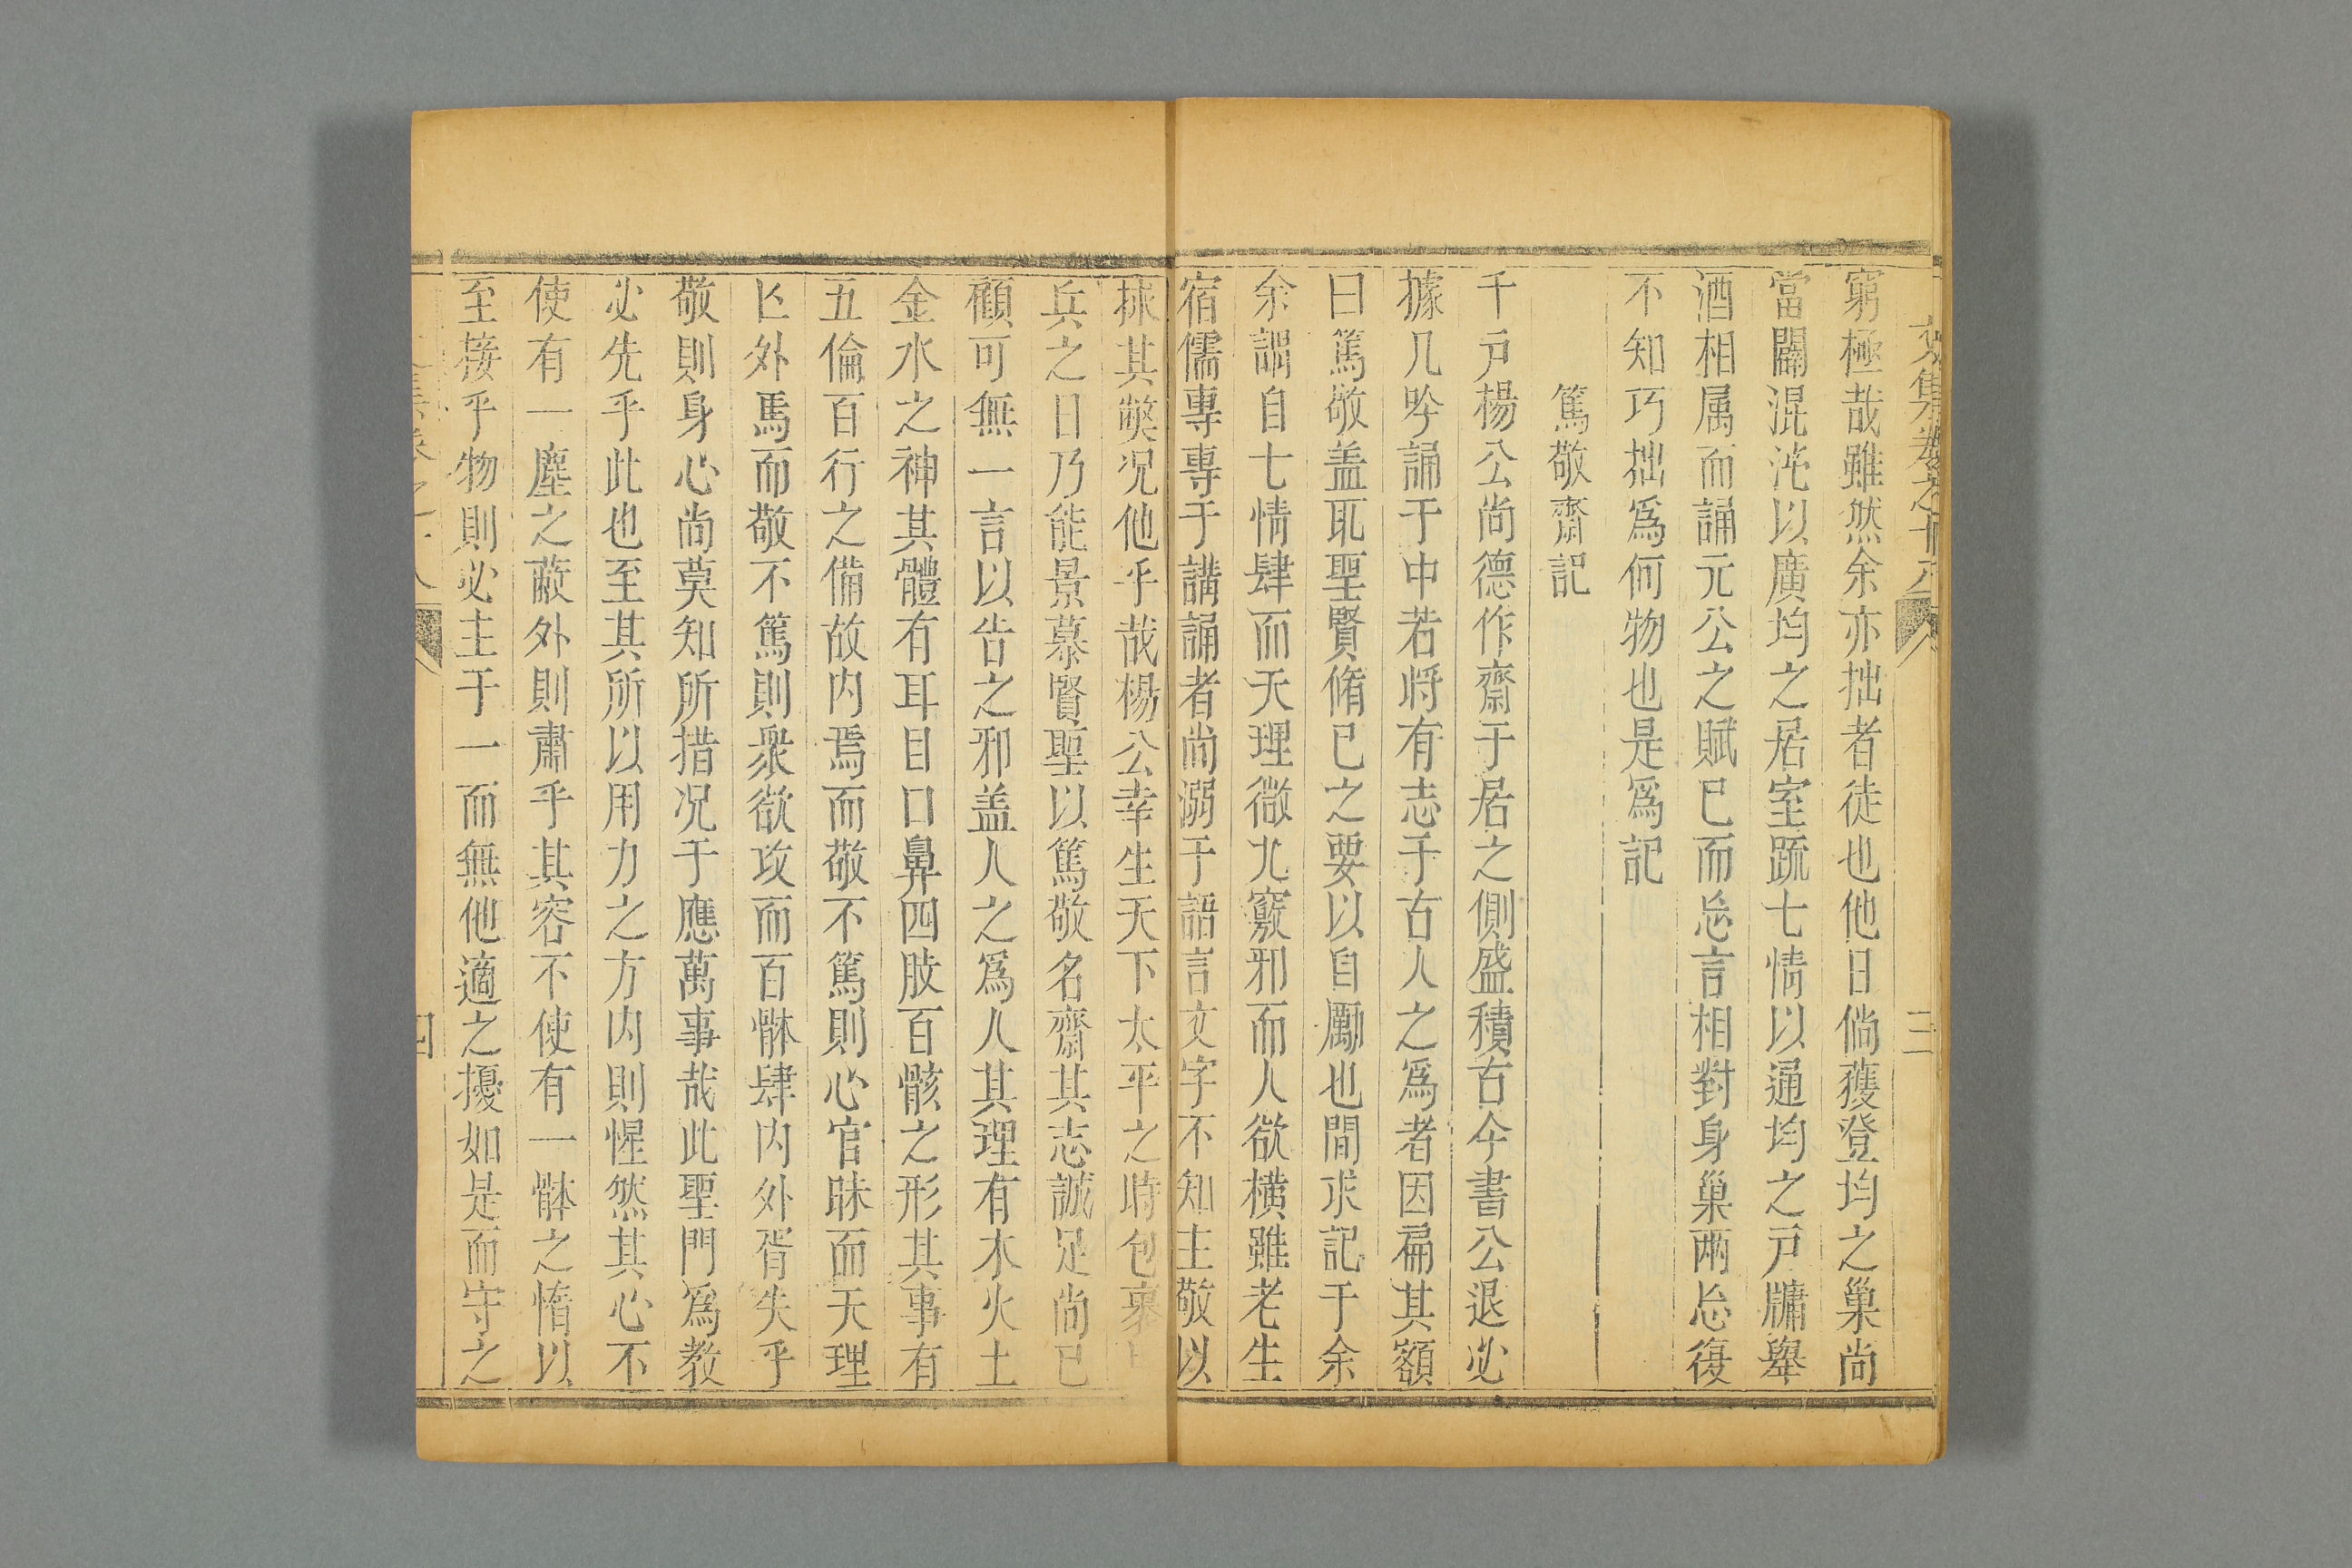 文集卷之十八
三
窮極哉雖然余亦拙者徒也他日倘獲登均之巢尚
當闢混沌以廣均之居室䟽七情以通均之戸牗舉
酒相属而誦元公之賦巳而忘言相對身巢兩忘復
不知巧拙爲何物也是爲記
篤敬齋記
千戸楊公尚德作齋于居之側盛積古今書公退必
據几吟誦于中若将有志于古人之爲者因扁其額
曰篤敬盖取聖賢脩已之要以自勵也間求記于余
余謂自七情肆而天理微九竅邪而人欲横雖老生
宿儒專專于講誦者尚溺于語言文字不知主敬以
捄其獘况他乎哉楊公幸生天下太平之時包裹
兵之日乃能景慕賢聖以篤敬名齋其志誠足尚已
顧可無一言以告之邪盖人之爲人其理有木火土
金水之神其體有耳目口鼻四肢百骸之形其事有
五倫百行之備故内焉而敬不篤則心官昧而天理
亾外焉而敬不篤則衆欲攻而百骵肆内外胥失乎
敬則身心尚莫知所措况于應萬事哉此聖門爲教
必先乎此也至其所以用力之方内則惺然其心不
使有一塵之蔽外則肅乎其容不使有一骵之惰以
至接乎物則必主于一而無他適之擾如是而守之
四